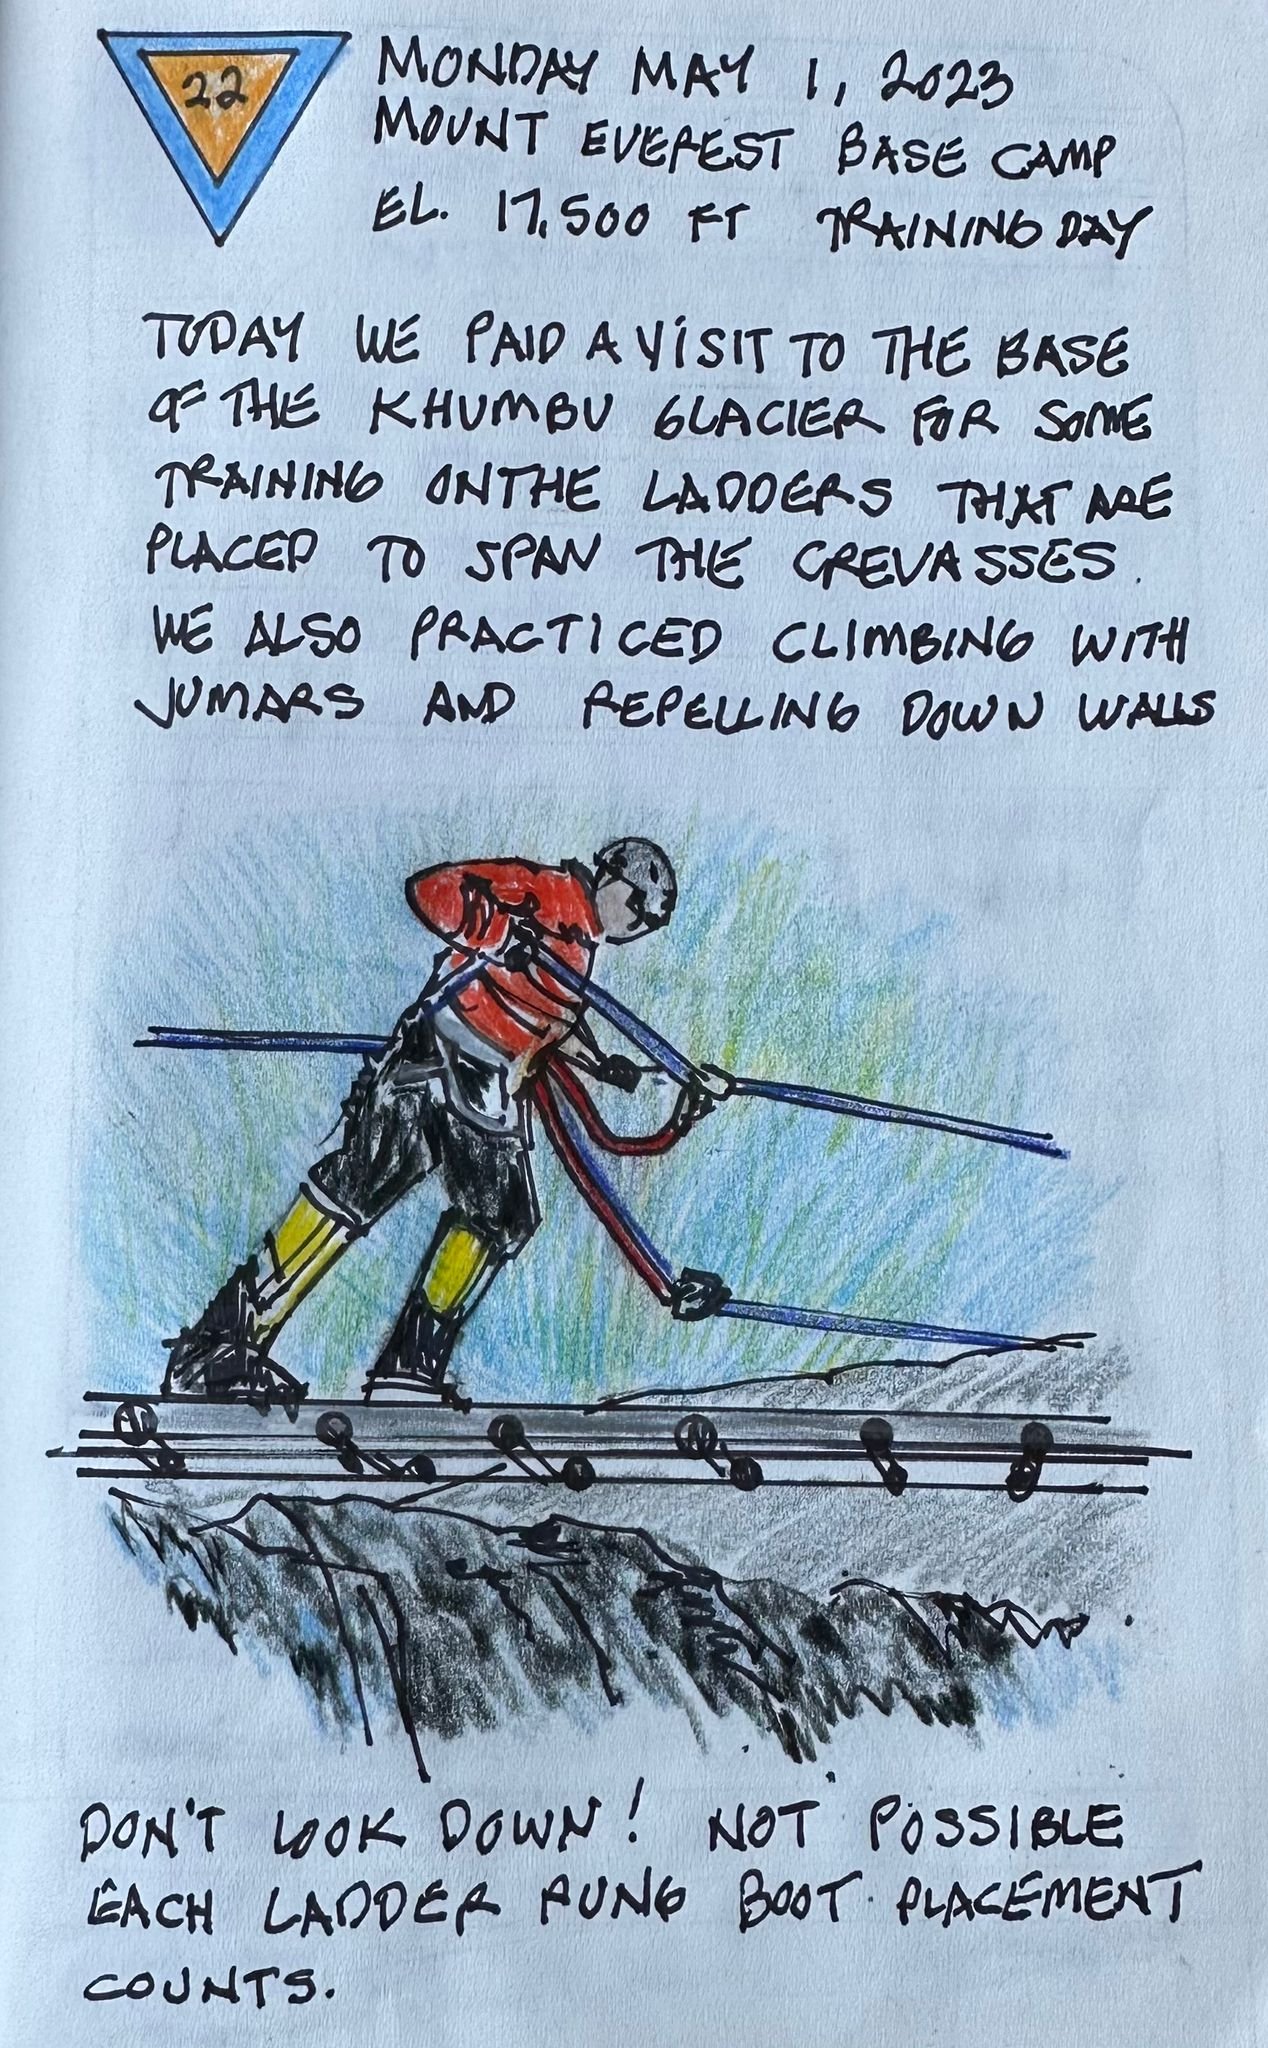 22
MONDAY MAY 1, 2023
MOUNT EVEREST BASE CAMP
EL. 17,500 FT TRAINING DAY
TODAY WE PAID A VISIT TO THE BASE
OF THE KHUMBU GLACIER FOR SOME
TRAINING ON THE LADDERS THAT ARE
PLACED TO SPAN THE CREVASSES.
WE ALSO PRACTICED CLIMBING WITH
JUMARS AND REPELLING DOWN WALLS
DON'T LOOK DOWN! NOT POSSIBLE
EACH LADDER RUNG BOOT PLACEMENT
COUNTS.